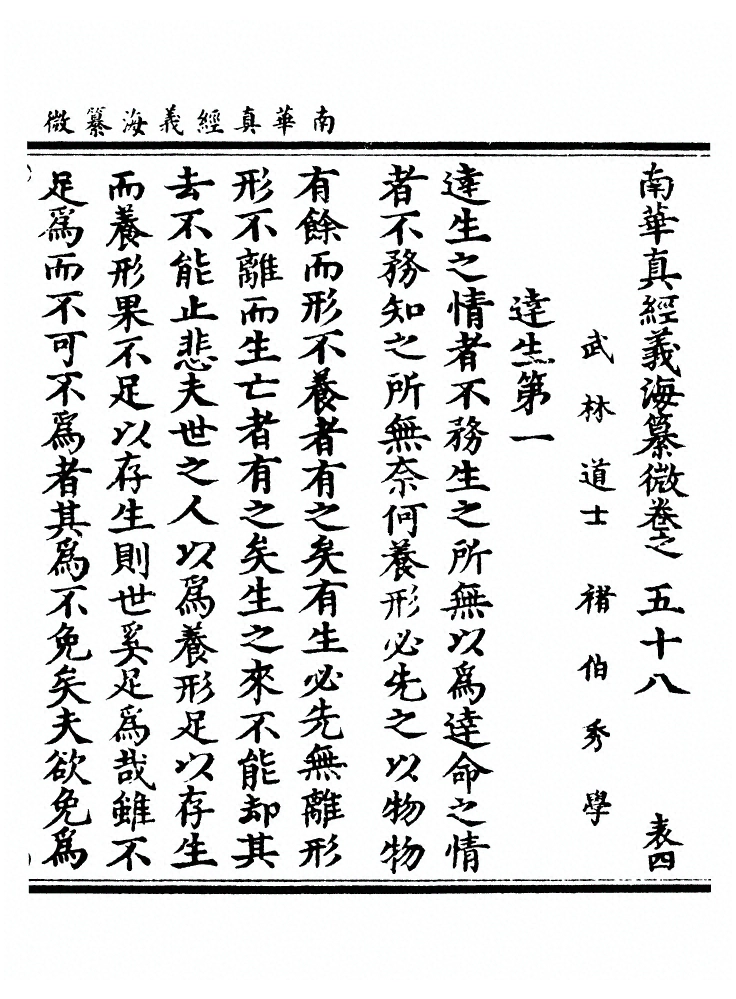 南華真經義海纂微
南華真經義海纂微卷之五十八 表四
武林道士褚伯秀學
達生第一
達生之情者不務生之所無以爲達命之情
者不務知之所無奈何養形必先之以物物
有餘而形不養者有之矣有生必先無離形
形不離而生亡者有之矣生之來不能却其
去不能止悲夫世之人以爲養形足以存生
而養形果不足以存生則世奚足爲哉雖不
足爲而不可不爲者其爲不免矣夫欲免爲